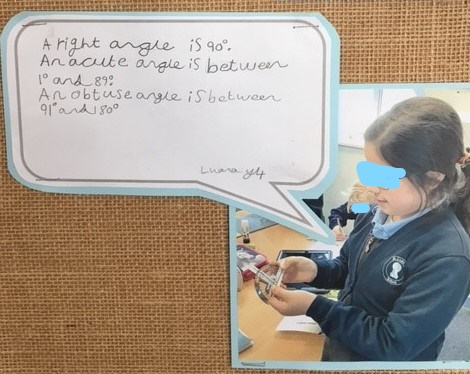 A right angle is 90°.
An acute angle is between
1° and 89°.
An obtuse angle is between
91° and 180°
Luana y4